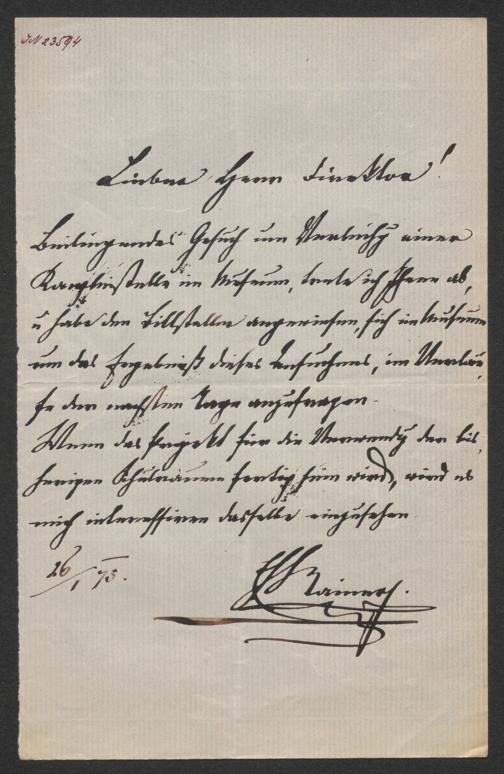 JN 23594
Lieber Herr Direktor!
Beiliegendes Gesuch um Verleihg einer
Kanzleistelle im Museum, trete ich Ihnen ab,
u habe den Bittsteller angewiesen, sich im Museum
um das Ergebniß dieses Ansuchens, im Verlau-
fe der nächsten Tage anzufragen.
Wenn das Projekt für die Verwendg der bis-
herigen Schulräume fertig sein wird, wird es
mich interessiren dasselbe einzusehen
26/I 73.
Rainer